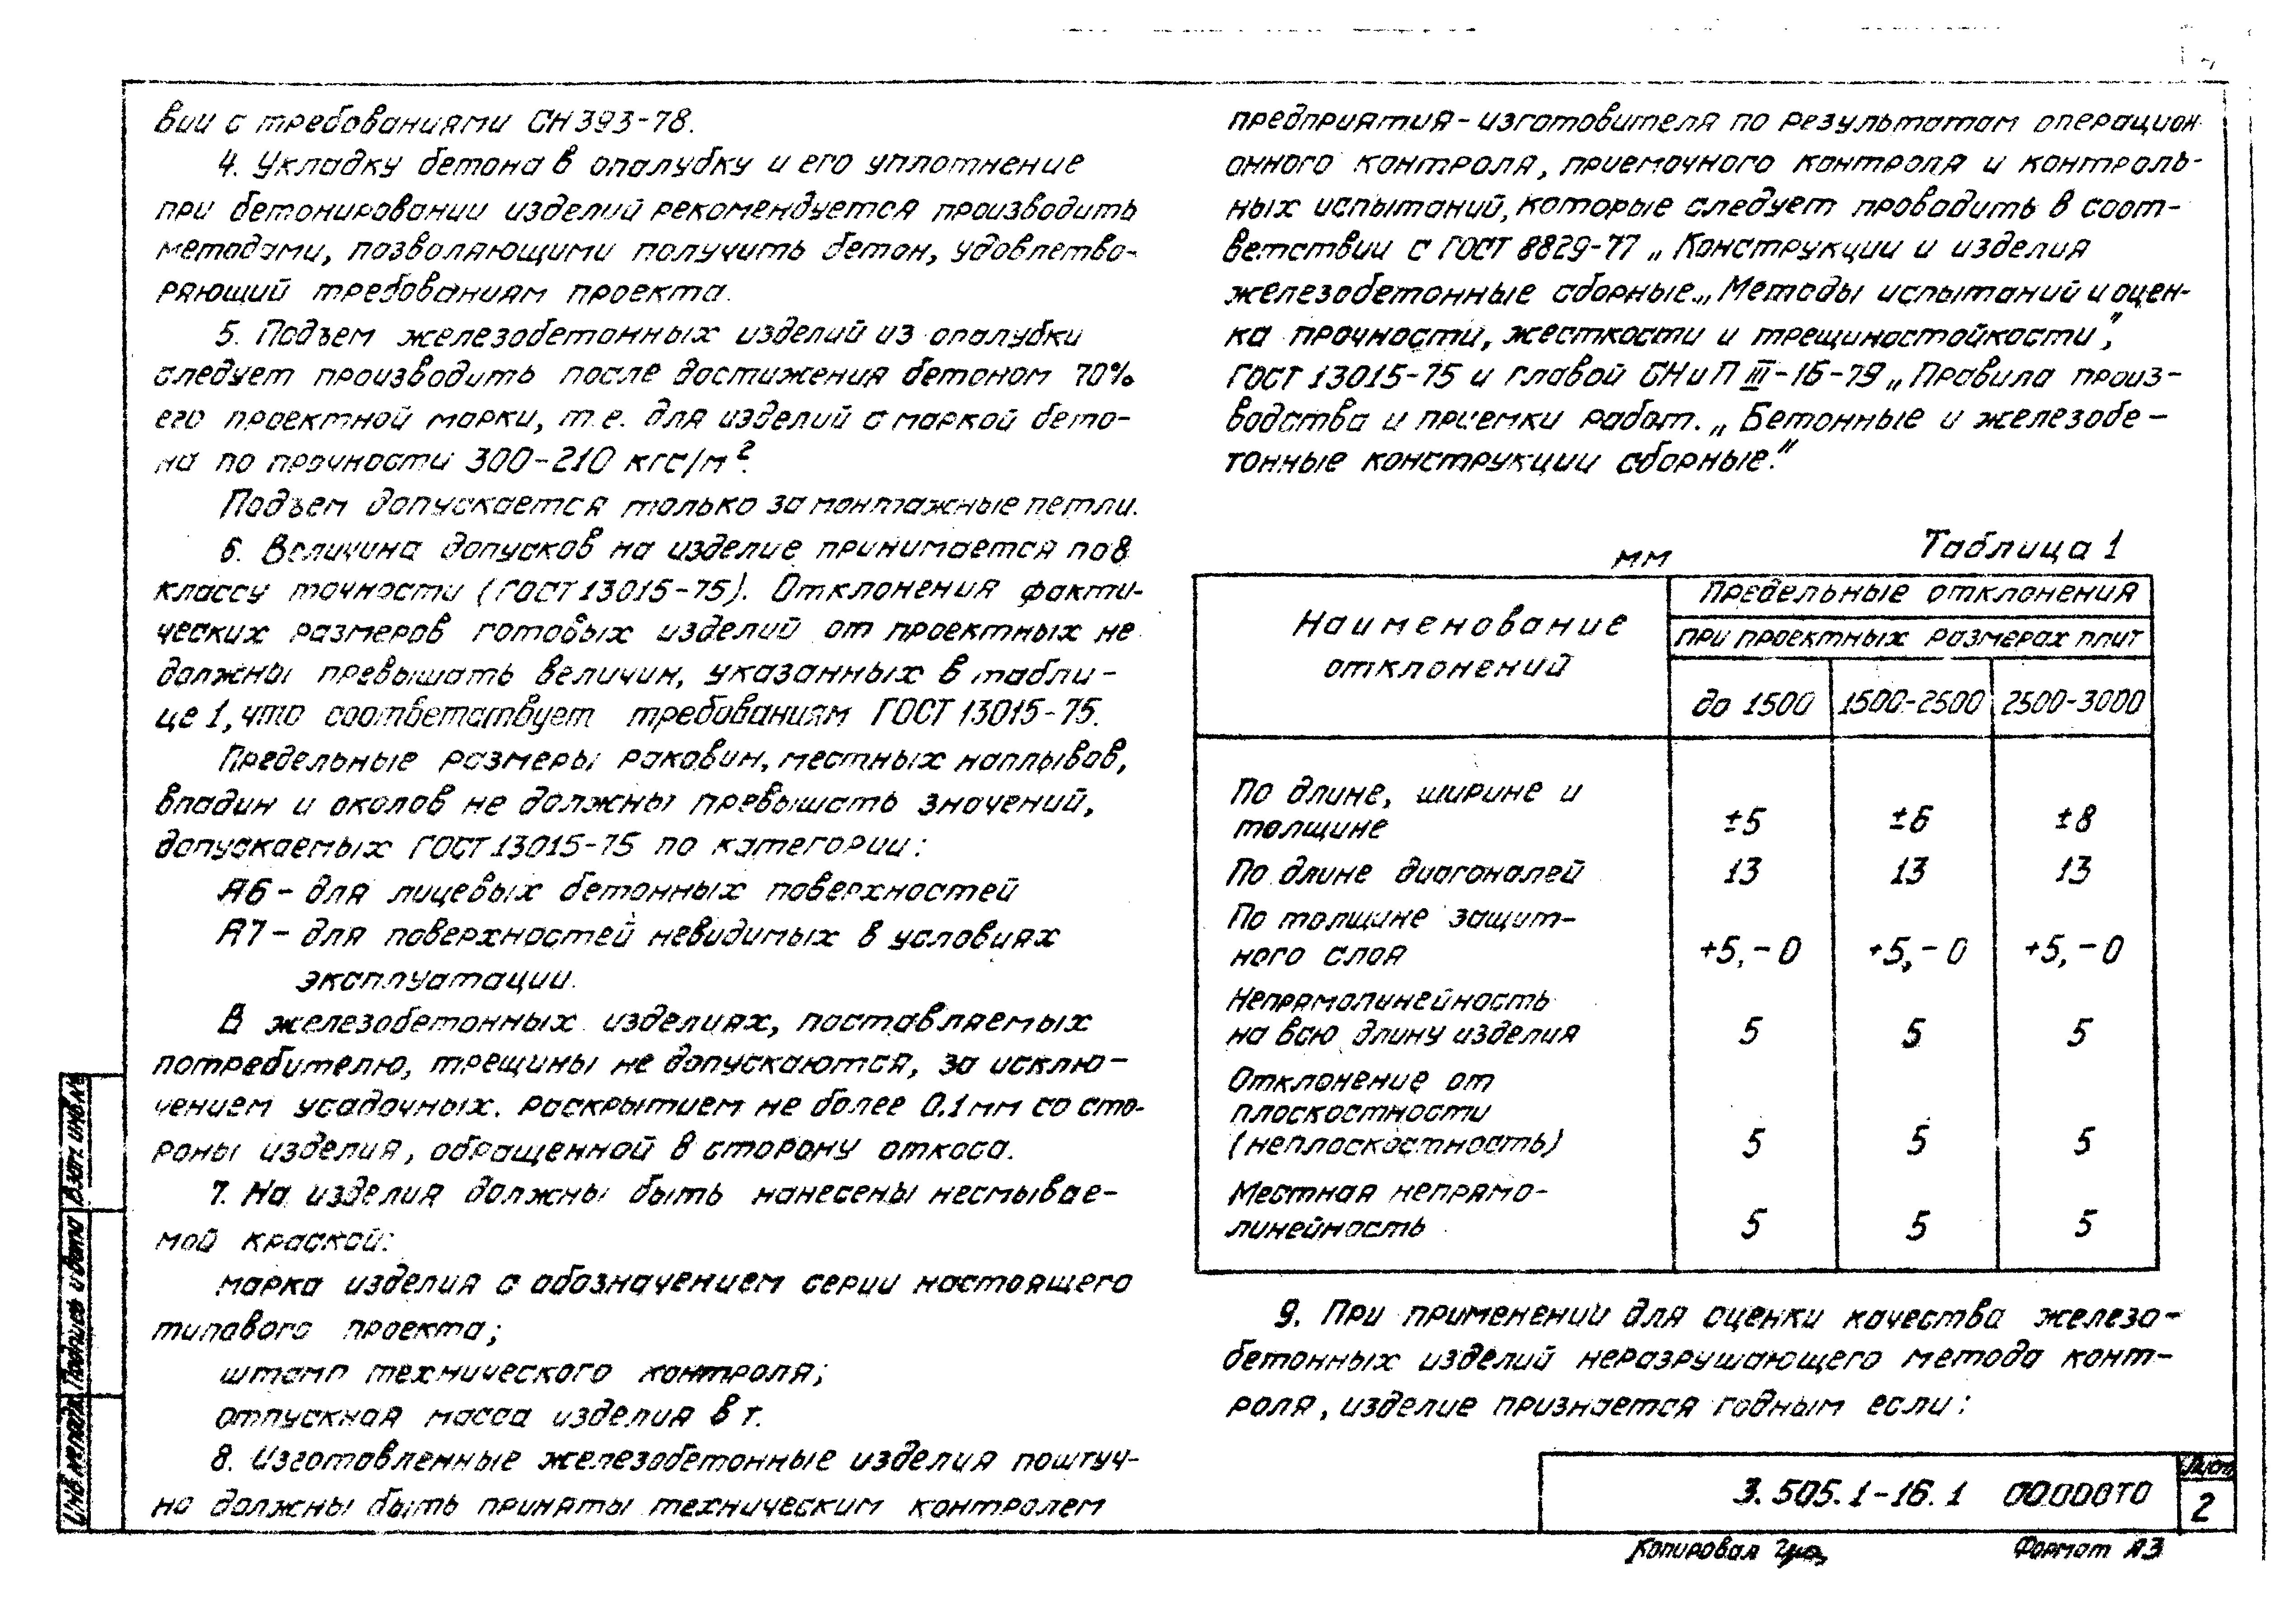 вии с требованиями СН 393-78.
4. Укладку бетона в опалубку и его уплотнение
при бетонировании изделий рекомендуется производить
методами, позволяющими получить бетон, удовлетво-
ряющий требованиям проекта.
5. Подъем железобетонных изделий из опалубки
следует производить после достижения бетоном 70%
его проектной марки, т.е. для изделий с маркой бето-
на по прочности 300-210 кгс/м².
Подъем допускается только за монтажные петли.
6. Величина допусков на изделие принимается по 8
классу точности (ГОСТ 13015-75). Отклонения факти-
ческих размеров готовых изделий от проектных не
должны превышать величин, указанных в табли-
це 1, что соответствует требованиям ГОСТ 13015-75.
Предельные размеры раковин, местных наплывов,
впадин и околов не должны превышать значений,
допускаемых ГОСТ 13015-75 по категории:
А6 - для лицевых бетонных поверхностей
А7 - для поверхностей невидимых в условиях
эксплуатации.
В железобетонных изделиях, поставляемых
потребителю, трещины не допускаются, за исклю-
чением усадочных. раскрытием не более 0.1 мм со сто-
роны изделия, обращенной в сторону откоса.
7. На изделия должны быть нанесены несмывае-
мой краской:
марка изделия с обозначением серии настоящего
типового проекта;
штамп технического контроля;
отпускная масса изделия в т.
8. Изготовленные железобетонные изделия поштуч-
но должны быть приняты техническим контролем
предприятия-изготовителя по результатам операцион
онного контроля, приемочного контроля и контроль-
ных испытаний, которые следует проводить в соот-
ветствии с ГОСТ 8829-77 „Конструкции и изделия
железобетонные сборные.„Методы испытаний и оцен-
ка прочности, жесткости и трещиностойкости",
ГОСТ 13015-75 и главой СНиП III-16-79 „Правила произ-
водства и приемки работ.„Бетонные и железобе-
тонные конструкции сборные."
мм Таблица 1
Наименование отклонений Предельные отклонения
при проектных размерах плит
до 1500 1500-2500 2500-3000
По длине, ширине и
толщине ±5 ±6 ±8
По длине диагоналей 13 13 13
По толщине защит-
ного слоя +5,-0 +5,-0 +5,-0
Непрямолинейность
на всю длину изделия 5 5 5
Отклонение от
плоскостности
(неплоскостность) 5 5 5
Местная непрямо-
линейность 5 5 5
9. При применении для оценки качества железо-
бетонных изделий неразрушающего метода конт-
роля, изделие признается годным если:
3.505.1-16.1 00.000ТО
Лист
2
Копировал
Формат А3
Инв.№ подл. Подпись и дата Взам. инв.№